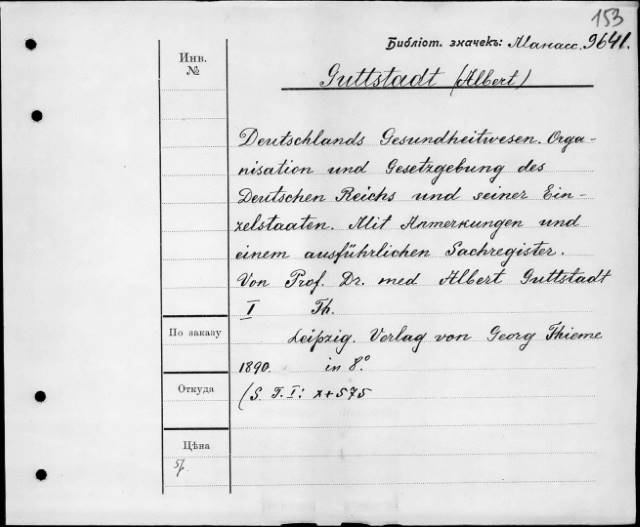 153
Библіот. значекъ: Манасс. 9641.
Инв.
№
Guttstadt (Albert)
Deutschlands Gesundheitwesen. Orga-
nisation und Gesetzgebung des
Deutschen Reichs und seiner Ein-
zelstaaten. Mit Anmerkungen und
einem ausführlichen Sachregister.
Von Prof. Dr. med Albert Guttstadt
I Th.
По заказу
Leipzig. Verlag von Georg Thieme
1890. in 8°
Откуда
(S. T. I: x+575
Цѣна